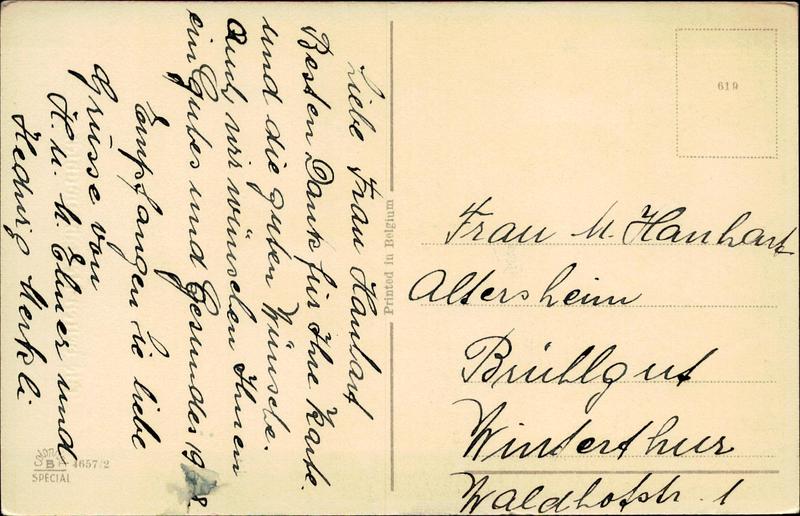 Liebe Frau Hanhart
Besten Dank für Ihre Karte.
und die guten Wünsche.
Auch wir wünschen Ihnen
ein Gutes und Gesundes 19 8.
Empfangen Sie liebe
Grüsse von
H. u. M. Elmer und
Hedwig Merkli
Printed in Belgium
619
Frau M. Hanhart
Altersheim
Brühlgut
Winterthur
Waldhofstr. 1
B
4657/2
SPECIAL